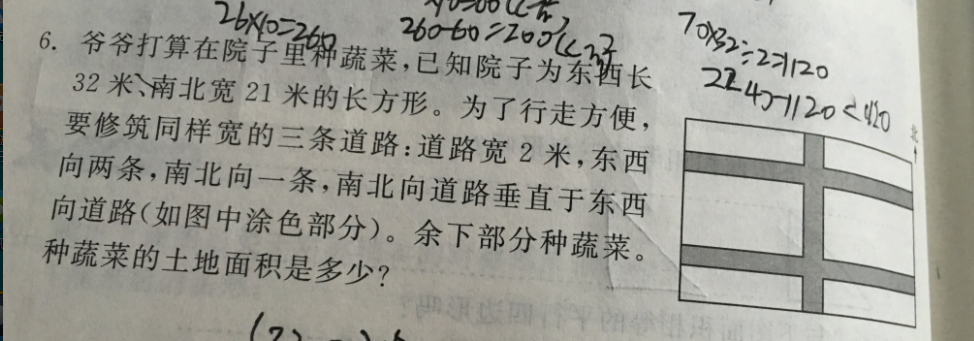 26×10=260
260-60=200(
70×32÷2=1120
6. 爷爷打算在院子里种蔬菜,已知院子为东西长
32 米、南北宽 21 米的长方形。为了行走方便,
要修筑同样宽的三条道路:道路宽 2 米,东西
向两条,南北向一条,南北向道路垂直于东西
向道路(如图中涂色部分)。余下部分种蔬菜。
种蔬菜的土地面积是多少?
北